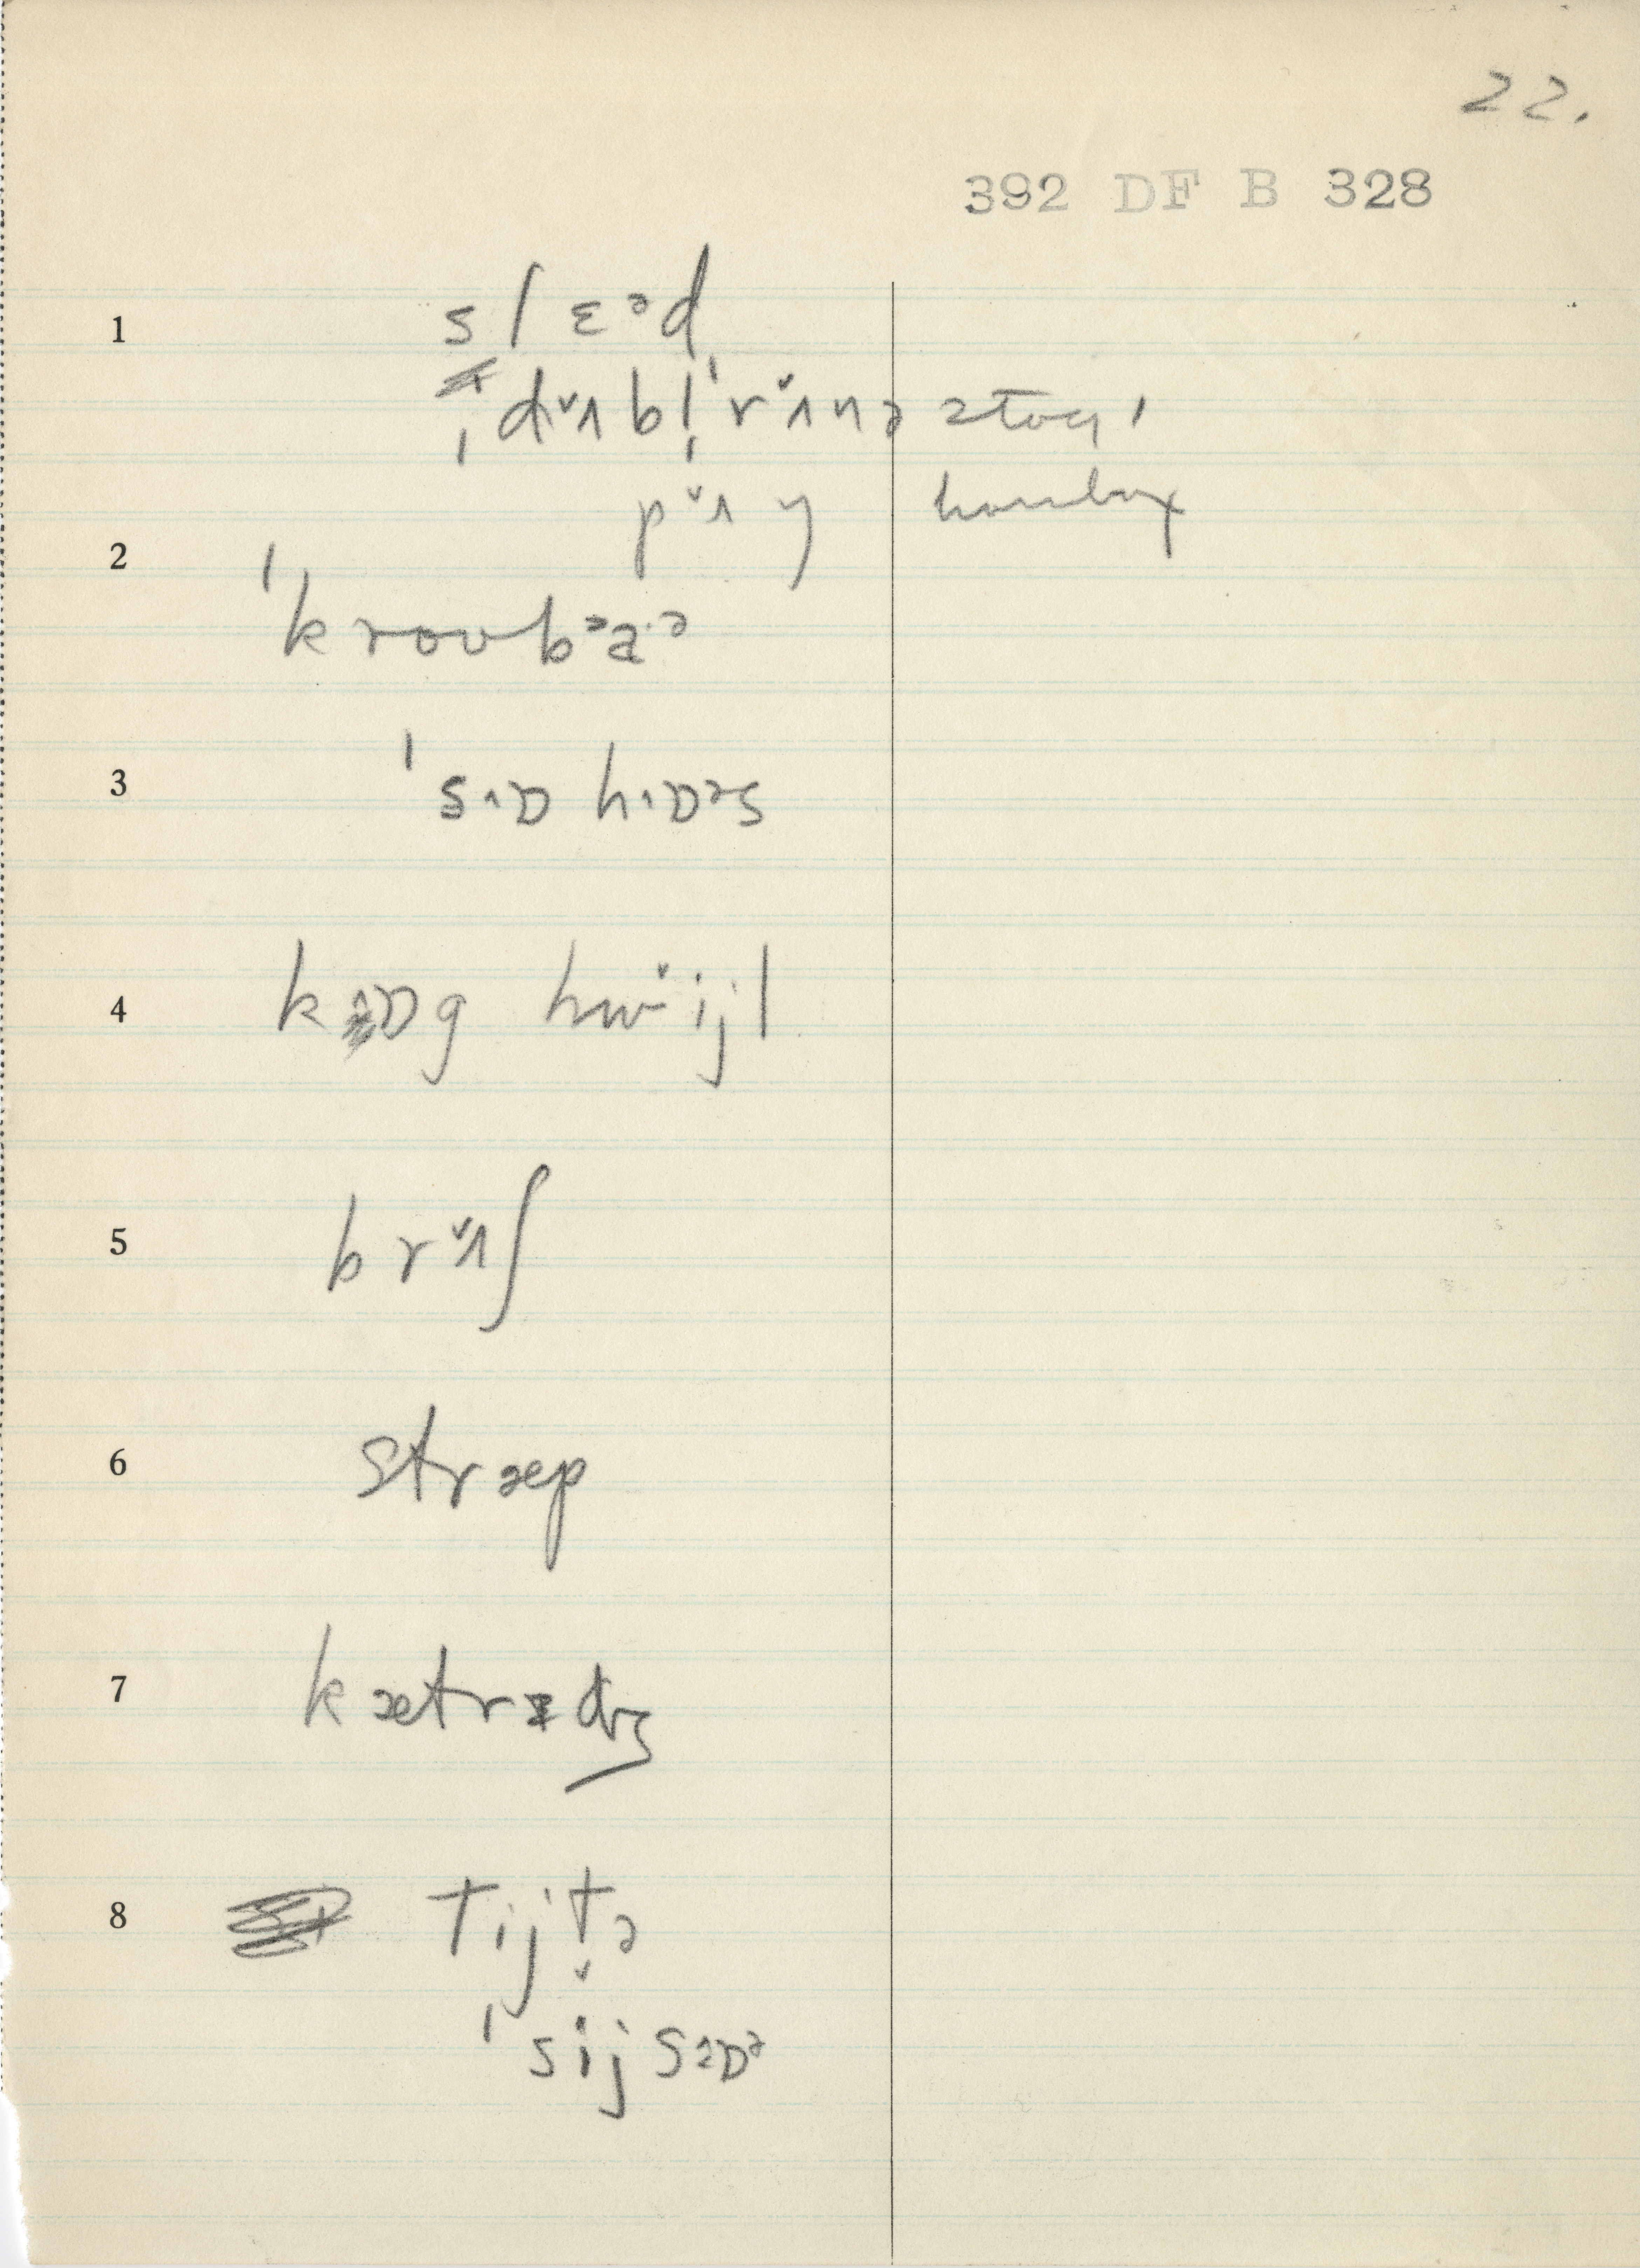 22.
392 DF B 328
1 slɛᵊd
ˌdˇʌbl̩ˈrˇʌnə
pˇʌŋ
2 ˈkroʊbᵊaˑᵊ
3 ˈsˑɒhˑɒᵊs
4 kɒg hwˇijl
5 brˇʌʃ
6 stræp
7 kætrɪdʒ
8 tijtə
ˈsijsɒᵊ